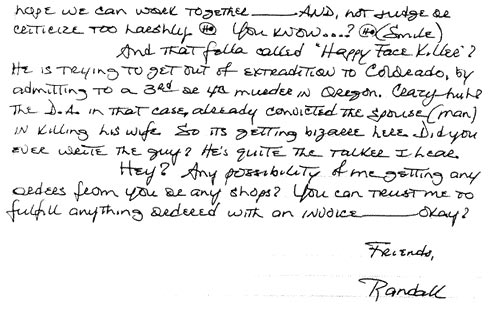 hope we can work together——AND, not judge or
criticize too harshly. You know...? (Smile)
And that fella called "Happy Face Killer"?
He is trying to get out of extradition to Colorado, by
admitting to a 3rd or 4th murder in Oregon. Crazy huh?
The D.A. in that case, already convicted the spouse (man)
in killing his wife. So its getting bizarre here. Did you
ever write the guy? He's quite the talker I hear.
Hey? Any possibility of me getting any
orders from you or any shops? You can trust me to
fulfill anything ordered with an invoice——okay?
Friends,
Randall